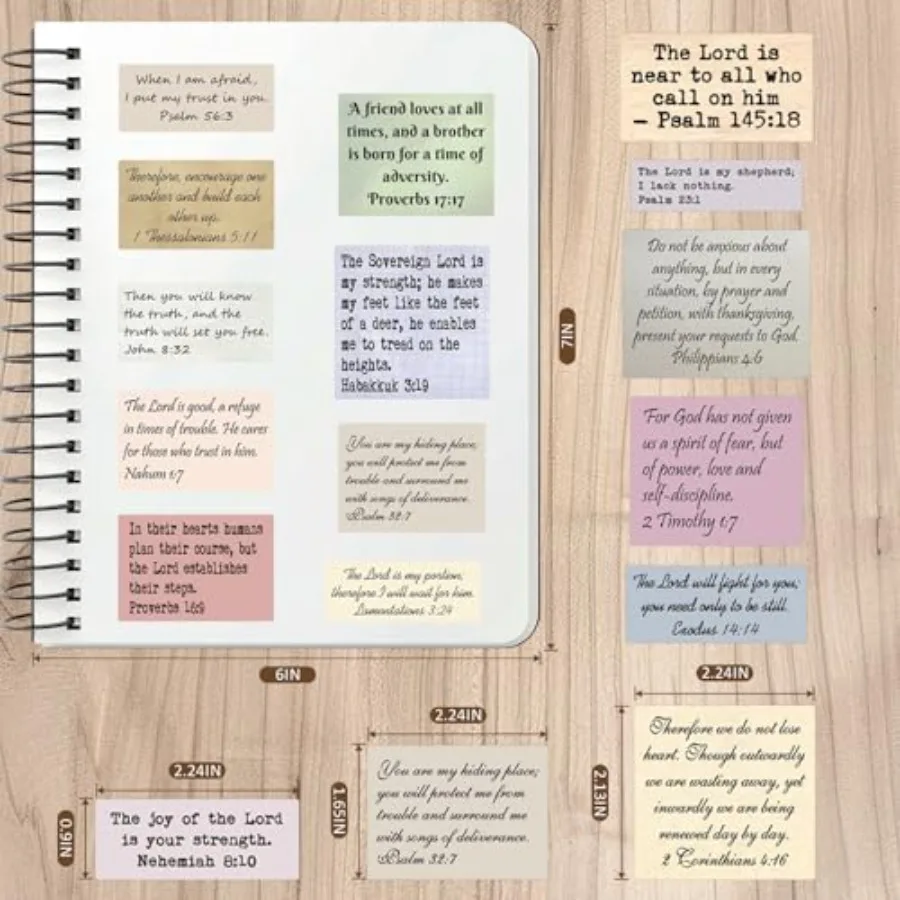 When I am afraid,
I put my trust in you.
Psalm 56:3
Therefore, encourage one
another and build each
other up.
1 Thessalonians 5:11
Then you will know
the truth, and the
truth will set you free.
John 8:32
The Lord is good, a refuge
in times of trouble. He cares
for those who trust in him.
Nahum 1:7
In their hearts humans
plan their course, but
the Lord establishes
their steps.
Proverbs 16:9
A friend loves at all
times, and a brother
is born for a time of
adversity.
Proverbs 17:17
The Sovereign Lord is
my strength; he makes
my feet like the feet
of a deer, he enables
me to tread on the
heights.
Habakkuk 3:19
You are my hiding place;
you will protect me from
trouble and surround me
with songs of deliverance.
Psalm 32:7
The Lord is my portion,
therefore I will wait for him.
Lamentations 3:24
7IN
6IN
The Lord is
near to all who
call on him
– Psalm 145:18
The Lord is my shepherd;
I lack nothing.
Psalm 23:1
Do not be anxious about
anything, but in every
situation, by prayer and
petition, with thanksgiving,
present your requests to God.
Philippians 4:6
For God has not given
us a spirit of fear, but
of power, love and
self-discipline.
2 Timothy 1:7
The Lord will fight for you;
you need only to be still.
Exodus 14:14
2.24IN
0.9IN
The joy of the Lord
is your strength.
Nehemiah 8:10
2.24IN
1.65IN
You are my hiding place;
you will protect me from
trouble and surround me
with songs of deliverance.
Psalm 32:7
2.24IN
2.13IN
Therefore we do not lose
heart. Though outwardly
we are wasting away, yet
inwardly we are being
renewed day by day.
2 Corinthians 4:16